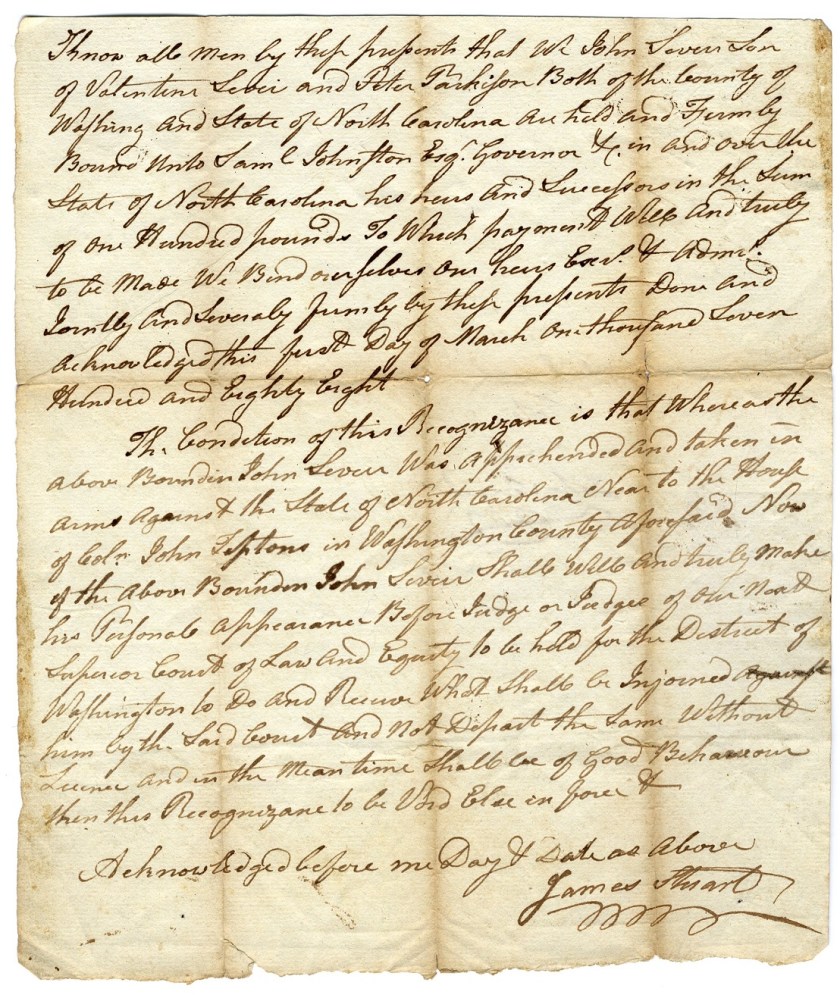 Know all men by these presents that We John Sevier Son
of Valentine Sevier and Peter Parkison Both of the County of
Washing and State of North Carolina are held and Firmly
Bound unto Saml Johnston Esqr. Governor &c. in and over the
State of North Carolina his heirs And Successors in the Sum
of One Hundred pounds To Which payment Well And truly
to be Made We Bind ourselves Our heirs Exrs. & Admrs.
Jointly And Severaby firmly by these presents Done and
Acknowledged this first Day of March One thousand Seven
Hundred and Eighty Eight
The Condition of this Recognizance is that Whereas the
above Bounden John Sevier Was Apprehended and taken in
arms Against the State of North Carolina Near to the House
of Coln. John Tiptons in Washington County Aforesaid Now
if the Above Bounden John Sevier Shall Well And truly Make
his Personal Appearance Before Judge or Judges of our Next
Superior Court of Law and Equity to be held for the District of
Washington to Do and Receive What Shall be Injoined against
him by the Said Court And Not Depart the Same Without
Licence and in the Mean time Shall be of Good Behaviour
then this Recognizane to be Void Else in force &
Acknowledged before me Day & Date as Above
James Stuart